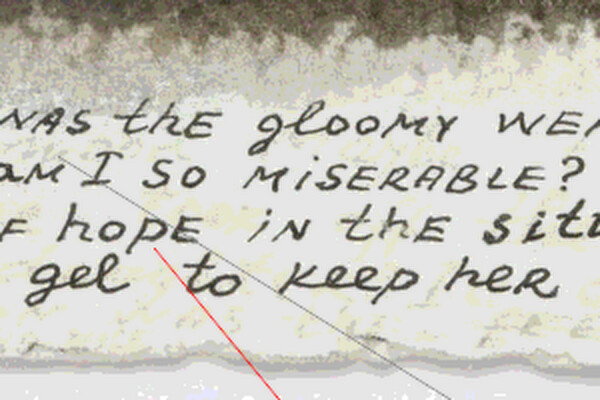 WAS thE glOOMY
aM I SO MiSERABLE?
hopE iN thE
gel to keep hER